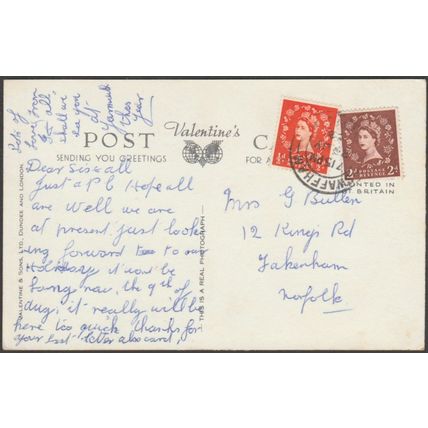 Lots of
love from
all
shall we
see you
at
Yarmouth
this
year
POST
Valentine's
SENDING YOU GREETINGS
Dear Sis & all
Just a P.C. Hope all
are well we are
at present just look-
ing forward to our
Holiday it won't be
long now, the 9th of
Aug; it really will be
here too quick thanks for
your last letter also card,
VALENTINE & SONS, LTD., DUNDEE AND LONDON.
THIS IS A REAL PHOTOGRAPH
Mrs G Bullen
12 Kings Rd
Fakenham
Norfolk
POSTAGE
REVENUE
2d
SWAFFHAM
PRINTED IN
BRITAIN